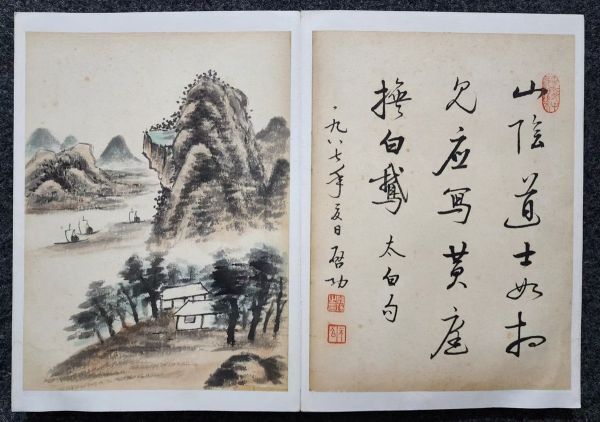 山陰道士如相
见应写黄庭
换白鵝 太白句
一九八七年夏日 启功